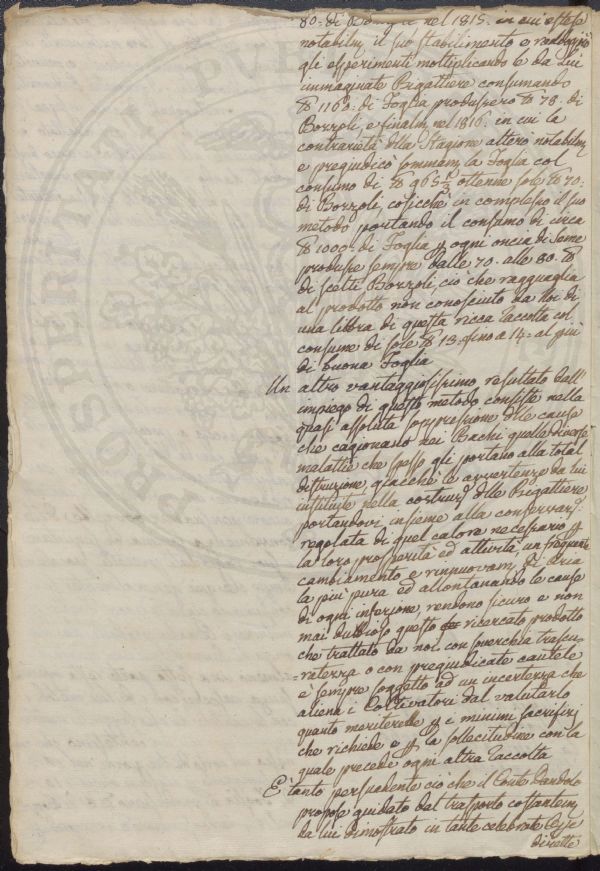 80. di nel 1815. in cui estese
notabilm. il suo stabilimento e raddoppiò
gli esperimenti moltiplicando le da Lui
immaginate Bigattiere consumando
℔ 1160. di Foglia produssero ℔ 78. di
Bozzoli, e finalm. nel 1816. in cui la
contrarietà della Stagione alterò notabilm.
e pregiudicò sommam. la Foglia col
consumo di ℔ 965 ottenne sole ℔ 70.
di Bozzoli, cosicchè in complesso il suo
metodo portando il consumo di circa
℔ 1000. di Foglia p ogni oncia di Seme
produsse sempre dalle 70. alle 80. ℔
di scelti Bozzoli, ciò che ragguaglia
al prodotto non conosciuto da Noi di
una libbra di questa ricca raccolta col
consumo di sole ℔ 13. fino a 14. al più
di buona Foglia
Un altro vantaggiosissimo resultato dall'
impiego di questo metodo consiste nella
quasi assoluta soppressione delle cause
che cagionano nei Bachi quelle diverse
malattie che spesso gli portano alla total
distruzione, giacchè le avvertenze da lui
instituite nella costruz. delle Bigattiere
portandovi insieme alla conservaz.
regolata di quel calore necessario p
la loro prosperità ed attività, un frequente
cambiamento e rinnuovam. di aria
la più pura ed allontanando le cause
di ogni infezione, rendono sicuro e non
mai dubbioso questo ricercato prodotto
che trattato da noi con soverchia trascu-
=ratezza o con pregiudicate cautele
è sempre soggetto ad un incertezza che
aliena i Coltivatori dal valutarlo
quanto meriterebbe p i minimi sacrifizj
che richiede e p la sollecitudine con la
quale precede ogni altra raccolta
E' tanto persuadente ciò che il Conte Dandolo
propose guidato dal trasporto costantem.
da lui dimostrato in tante celebrate
dirette